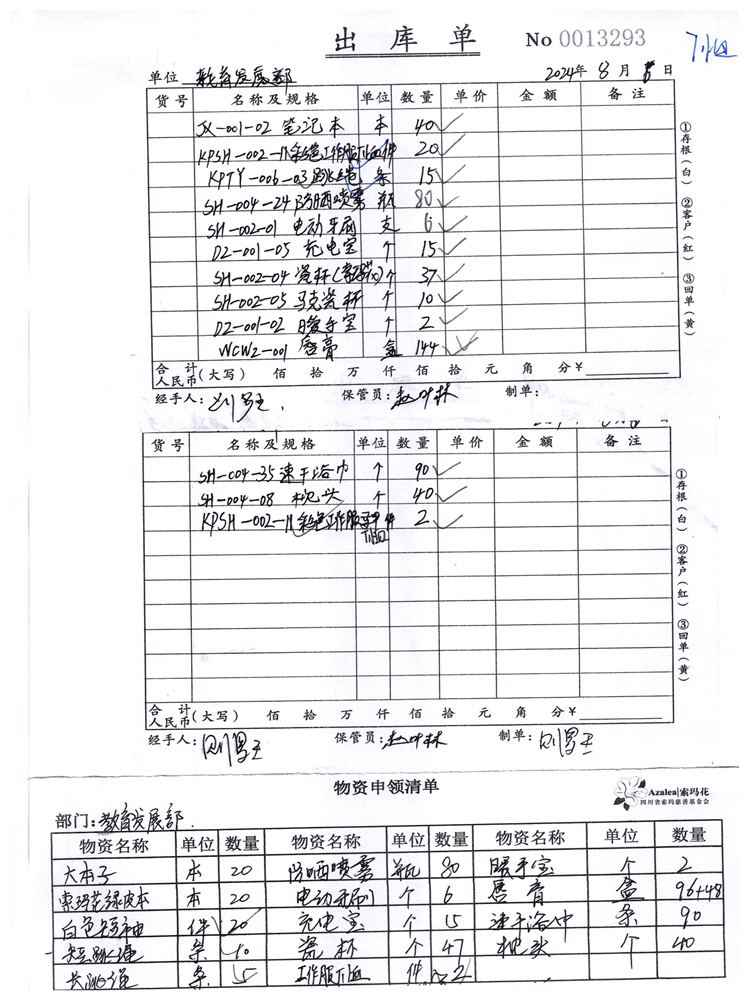 出库单 No 0013293
单位 教育发展部 2024年 8月 日
货号 名称及规格 单位 数量 单价 金额 备注
JX-001-02 笔记本 本 40
KPSH-002-11 彩色工作服T恤 件 20
KPTY-006-03 跳绳 条 15
SH-004-24 防晒喷雾 瓶 80
SH-002-01 电动牙刷 支 6
DZ-001-05 充电宝 个 15
SH-002-04 瓷杯(索玛花) 个 37
SH-002-05 马克瓷杯 个 10
DZ-001-02 暖手宝 个 2
WCWZ-001 唇膏 盒 144
合计人民币(大写) 佰 拾 万 仟 佰 拾 元 角 分 ¥
经手人: 保管员: 制单:
①存根(白) ②客户(红) ③回单(黄)
货号 名称及规格 单位 数量 单价 金额 备注
SH-004-35 速干浴巾 个 90
SH-004-08 枕头 个 40
KPSH-002-11 彩色工作服 件 2
T恤
合计人民币(大写) 佰 拾 万 仟 佰 拾 元 角 分 ¥
经手人: 保管员: 制单:
①存根(白) ②客户(红) ③回单(黄)
物资申领清单
Azalea|索玛花
四川省索玛慈善基金会
部门: 教育发展部.
物资名称 单位 数量 物资名称 单位 数量 物资名称 单位 数量
大本子 本 20 防晒喷雾 瓶 80 暖手宝 个 2
索玛花绿皮本 本 20 电动牙刷 个 6 唇膏 盒 96+48
白色短袖 件 20 充电宝 个 15 速干浴巾 条 90
短跳绳 条 10 瓷杯 个 47 枕头 个 40
长跳绳 条 5 工作服T恤 件 2